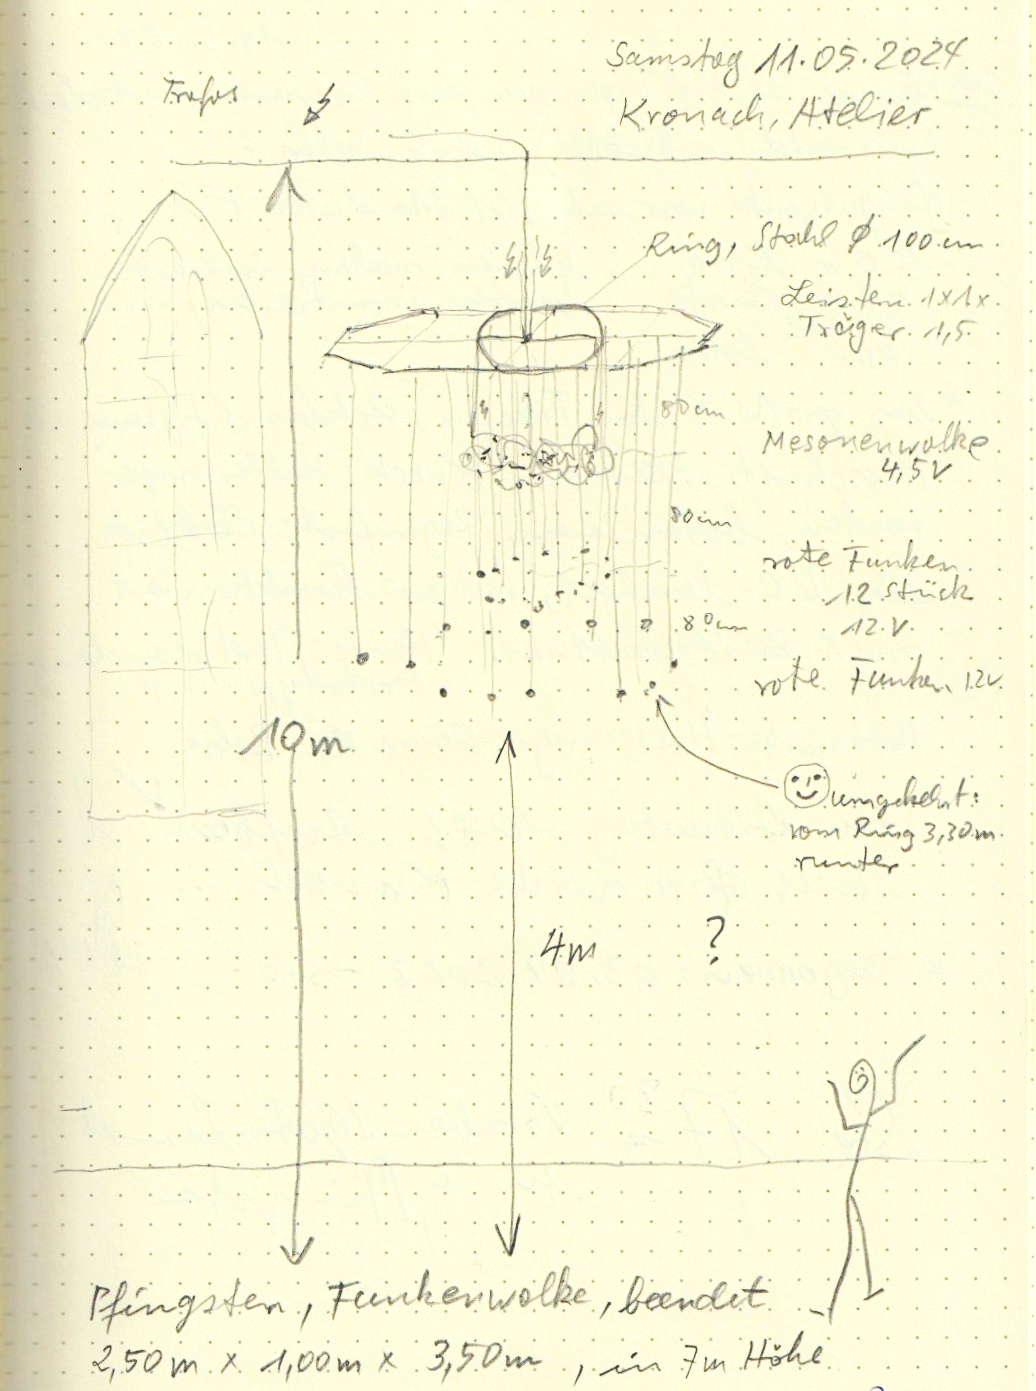 Samstag 11.05.2024
Kronach, Atelier
Trafos
Ring, Stahl Ø 100 cm
Leisten 1x1x
Träger 1,5
80cm
Mesonenwolke
4,5V
80cm
rote Funken
12 Stück
12 V
80cm
rote Funken 12V
10m
umgekehrt:
vom Ring 3,30m
runter
4m
?
Pfingsten, Funkenwolke, beendet
2,50m x 1,00m x 3,50m, in 7m Höhe